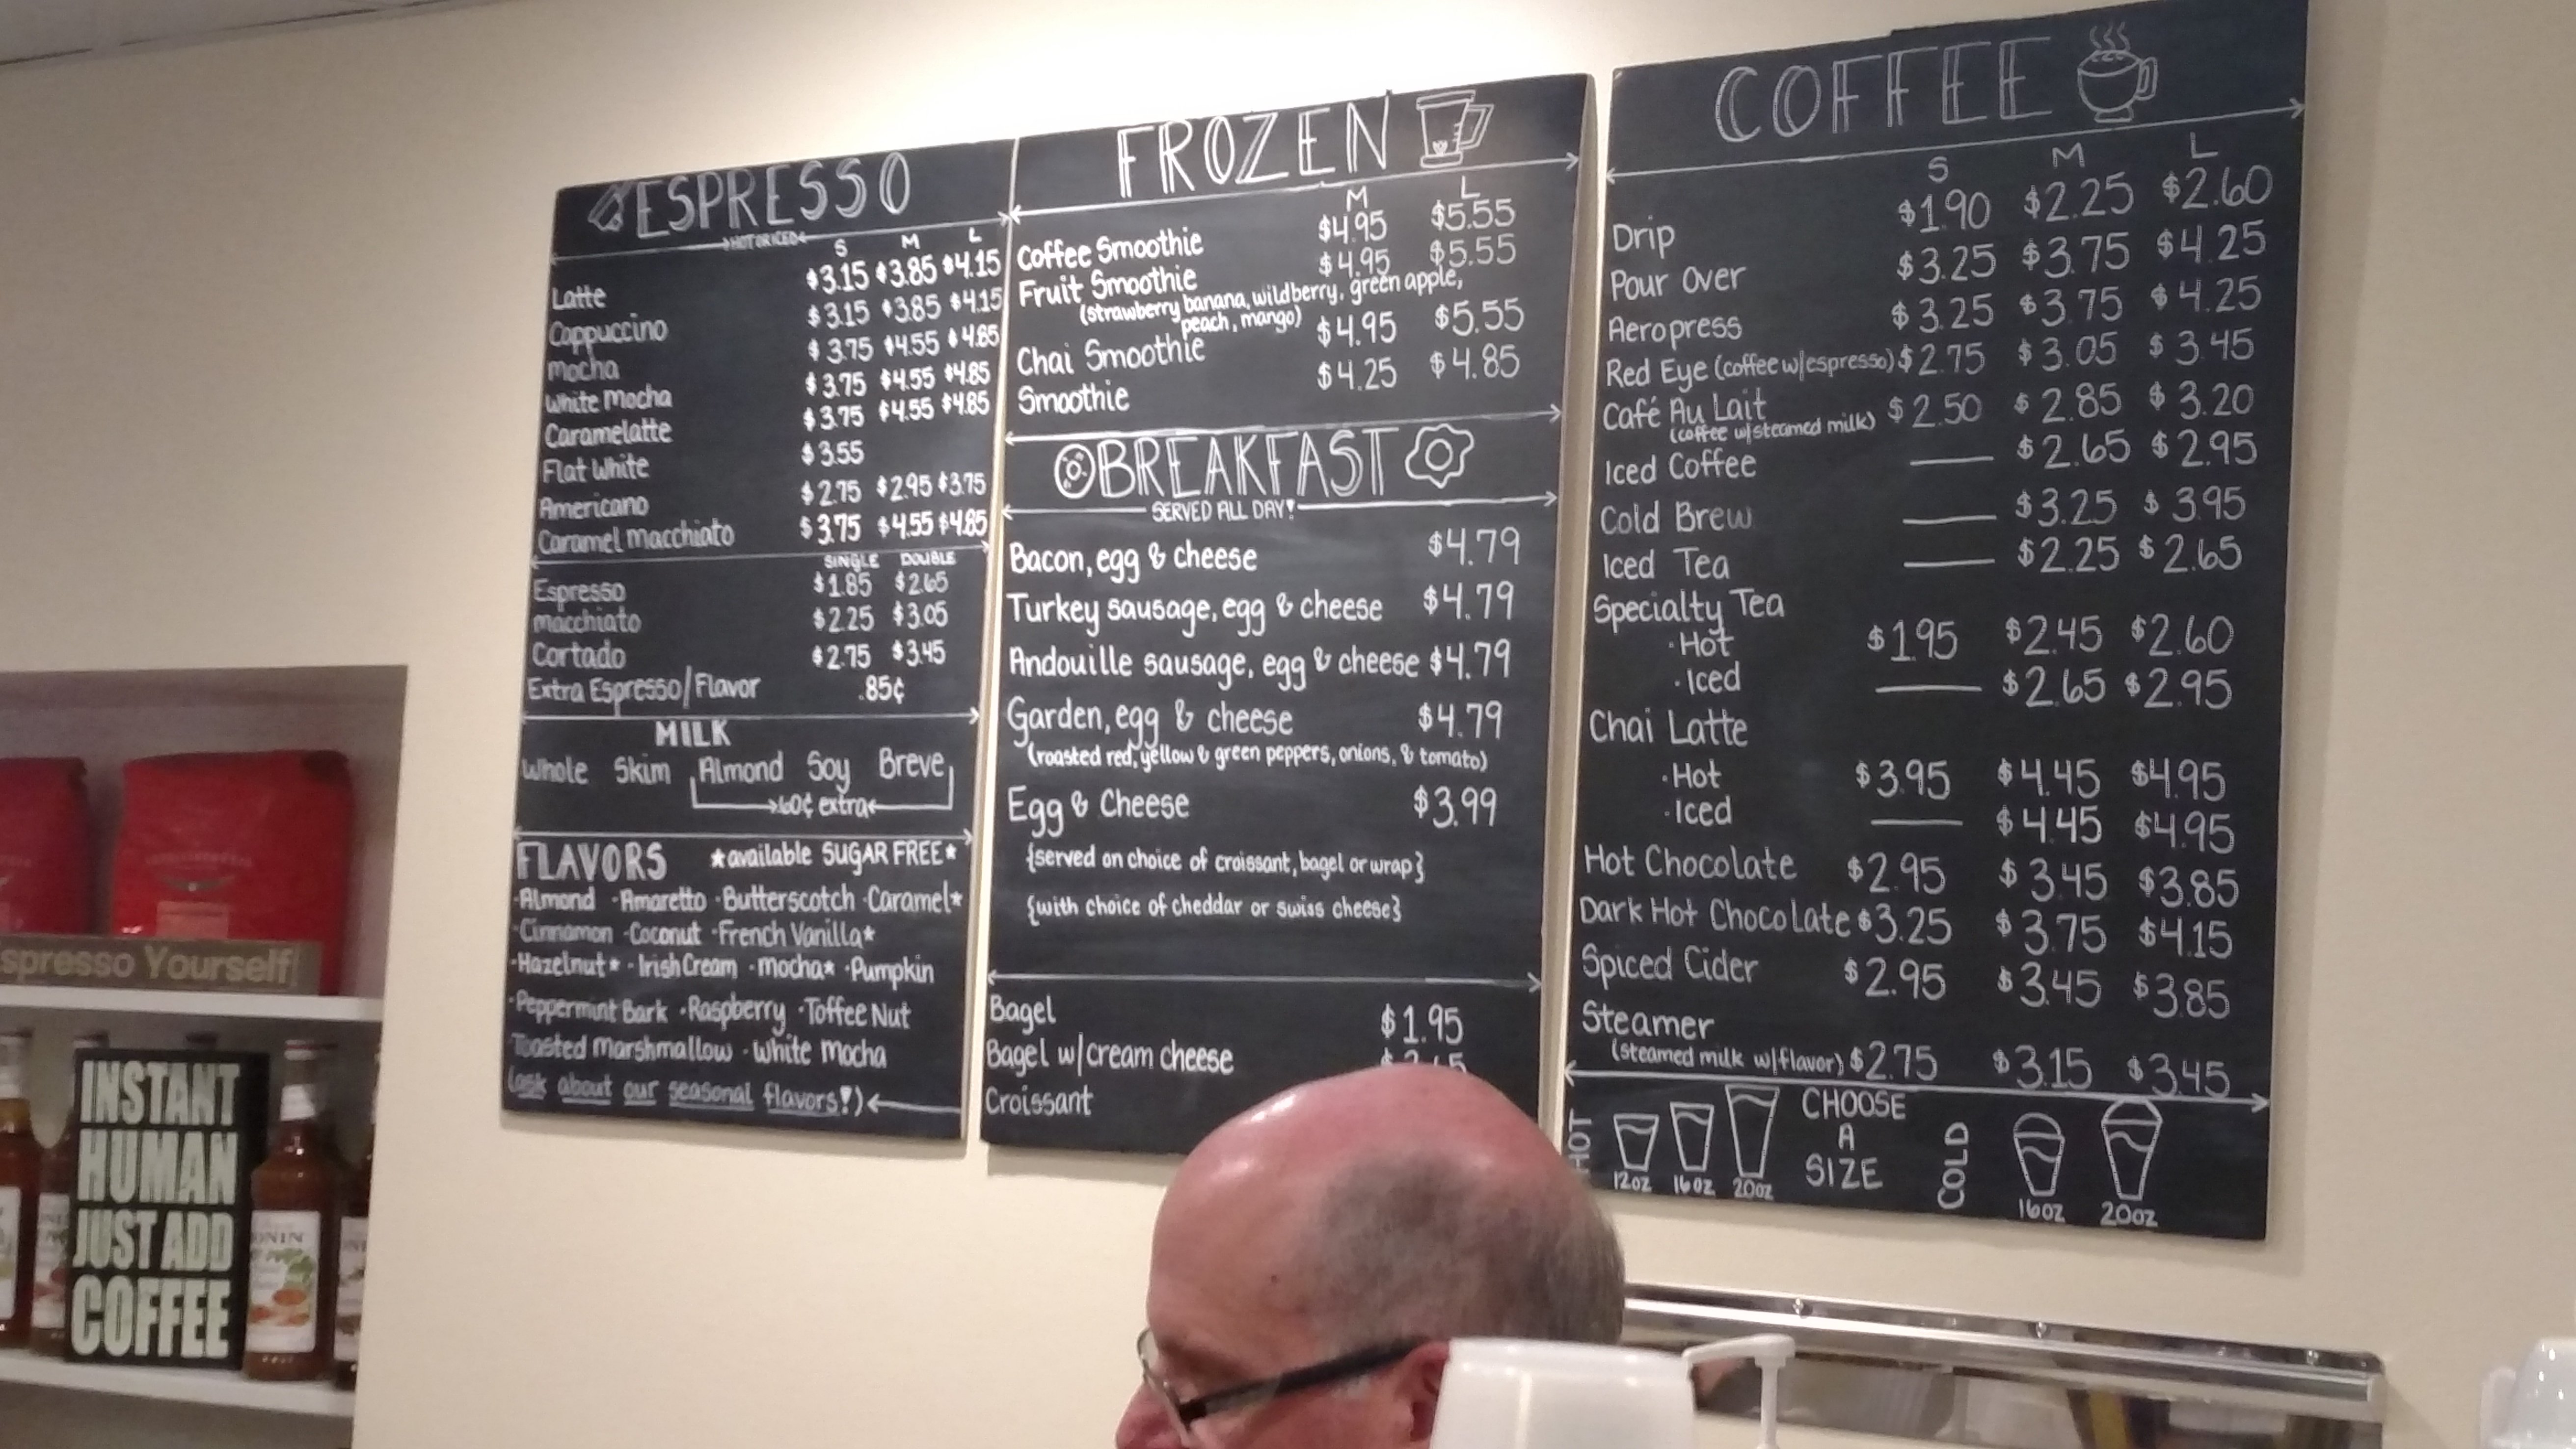 ESPRESSO
HOT OR ICED
S M L
Latte $3.15 $3.85 $4.15
Cappuccino $3.15 $3.85 $4.15
Mocha $3.75 $4.55 $4.85
White Mocha $3.75 $4.55 $4.85
Caramelatte $3.75 $4.55 $4.85
Flat White $3.55
Americano $2.75 $2.95 $3.75
Caramel Macchiato $3.75 $4.55 $4.85
SINGLE DOUBLE
Espresso $1.85 $2.65
Macchiato $2.25 $3.05
Cortado $2.75 $3.45
Extra Espresso/Flavor .85¢
MILK
Whole Skim Almond Soy Breve
60¢ extra
FLAVORS *available SUGAR FREE*
·Almond ·Amaretto ·Butterscotch ·Caramel*
·Cinnamon ·Coconut ·French Vanilla*
·Hazelnut* ·Irish Cream ·Mocha* ·Pumpkin
·Peppermint Bark ·Raspberry ·Toffee Nut
·Toasted Marshmallow ·White Mocha
(ask about our seasonal flavors!)
FROZEN
M L
Coffee Smoothie $4.95 $5.55
Fruit Smoothie $4.95 $5.55
(strawberry banana, wildberry, green apple,
peach, mango)
Chai Smoothie $4.95 $5.55
Smoothie $4.25 $4.85
BREAKFAST
SERVED ALL DAY!
Bacon, egg & cheese $4.79
Turkey sausage, egg & cheese $4.79
Andouille sausage, egg & cheese $4.79
Garden, egg & cheese $4.79
(roasted red, yellow & green peppers, onions, & tomato)
Egg & Cheese $3.99
{served on choice of croissant, bagel or wrap}
{with choice of cheddar or swiss cheese}
Bagel $1.95
Bagel w/cream cheese
Croissant
COFFEE
S M L
Drip $1.90 $2.25 $2.60
Pour Over $3.25 $3.75 $4.25
Aeropress $3.25 $3.75 $4.25
Red Eye (coffee w/espresso) $2.75 $3.05 $3.45
Café Au Lait $2.50 $2.85 $3.20
(coffee w/steamed milk)
Iced Coffee — $2.65 $2.95
Cold Brew — $3.25 $3.95
Iced Tea — $2.25 $2.65
Specialty Tea
·Hot $1.95 $2.45 $2.60
·Iced — $2.65 $2.95
Chai Latte
·Hot $3.95 $4.45 $4.95
·Iced — $4.45 $4.95
Hot Chocolate $2.95 $3.45 $3.85
Dark Hot Chocolate $3.25 $3.75 $4.15
Spiced Cider $2.95 $3.45 $3.85
Steamer
(steamed milk w/flavor) $2.75 $3.15 $3.45
HOT
12oz 16oz 20oz
CHOOSE
A
SIZE
COLD
16oz 20oz
spresso Yourself
INSTANT
HUMAN
JUST ADD
COFFEE